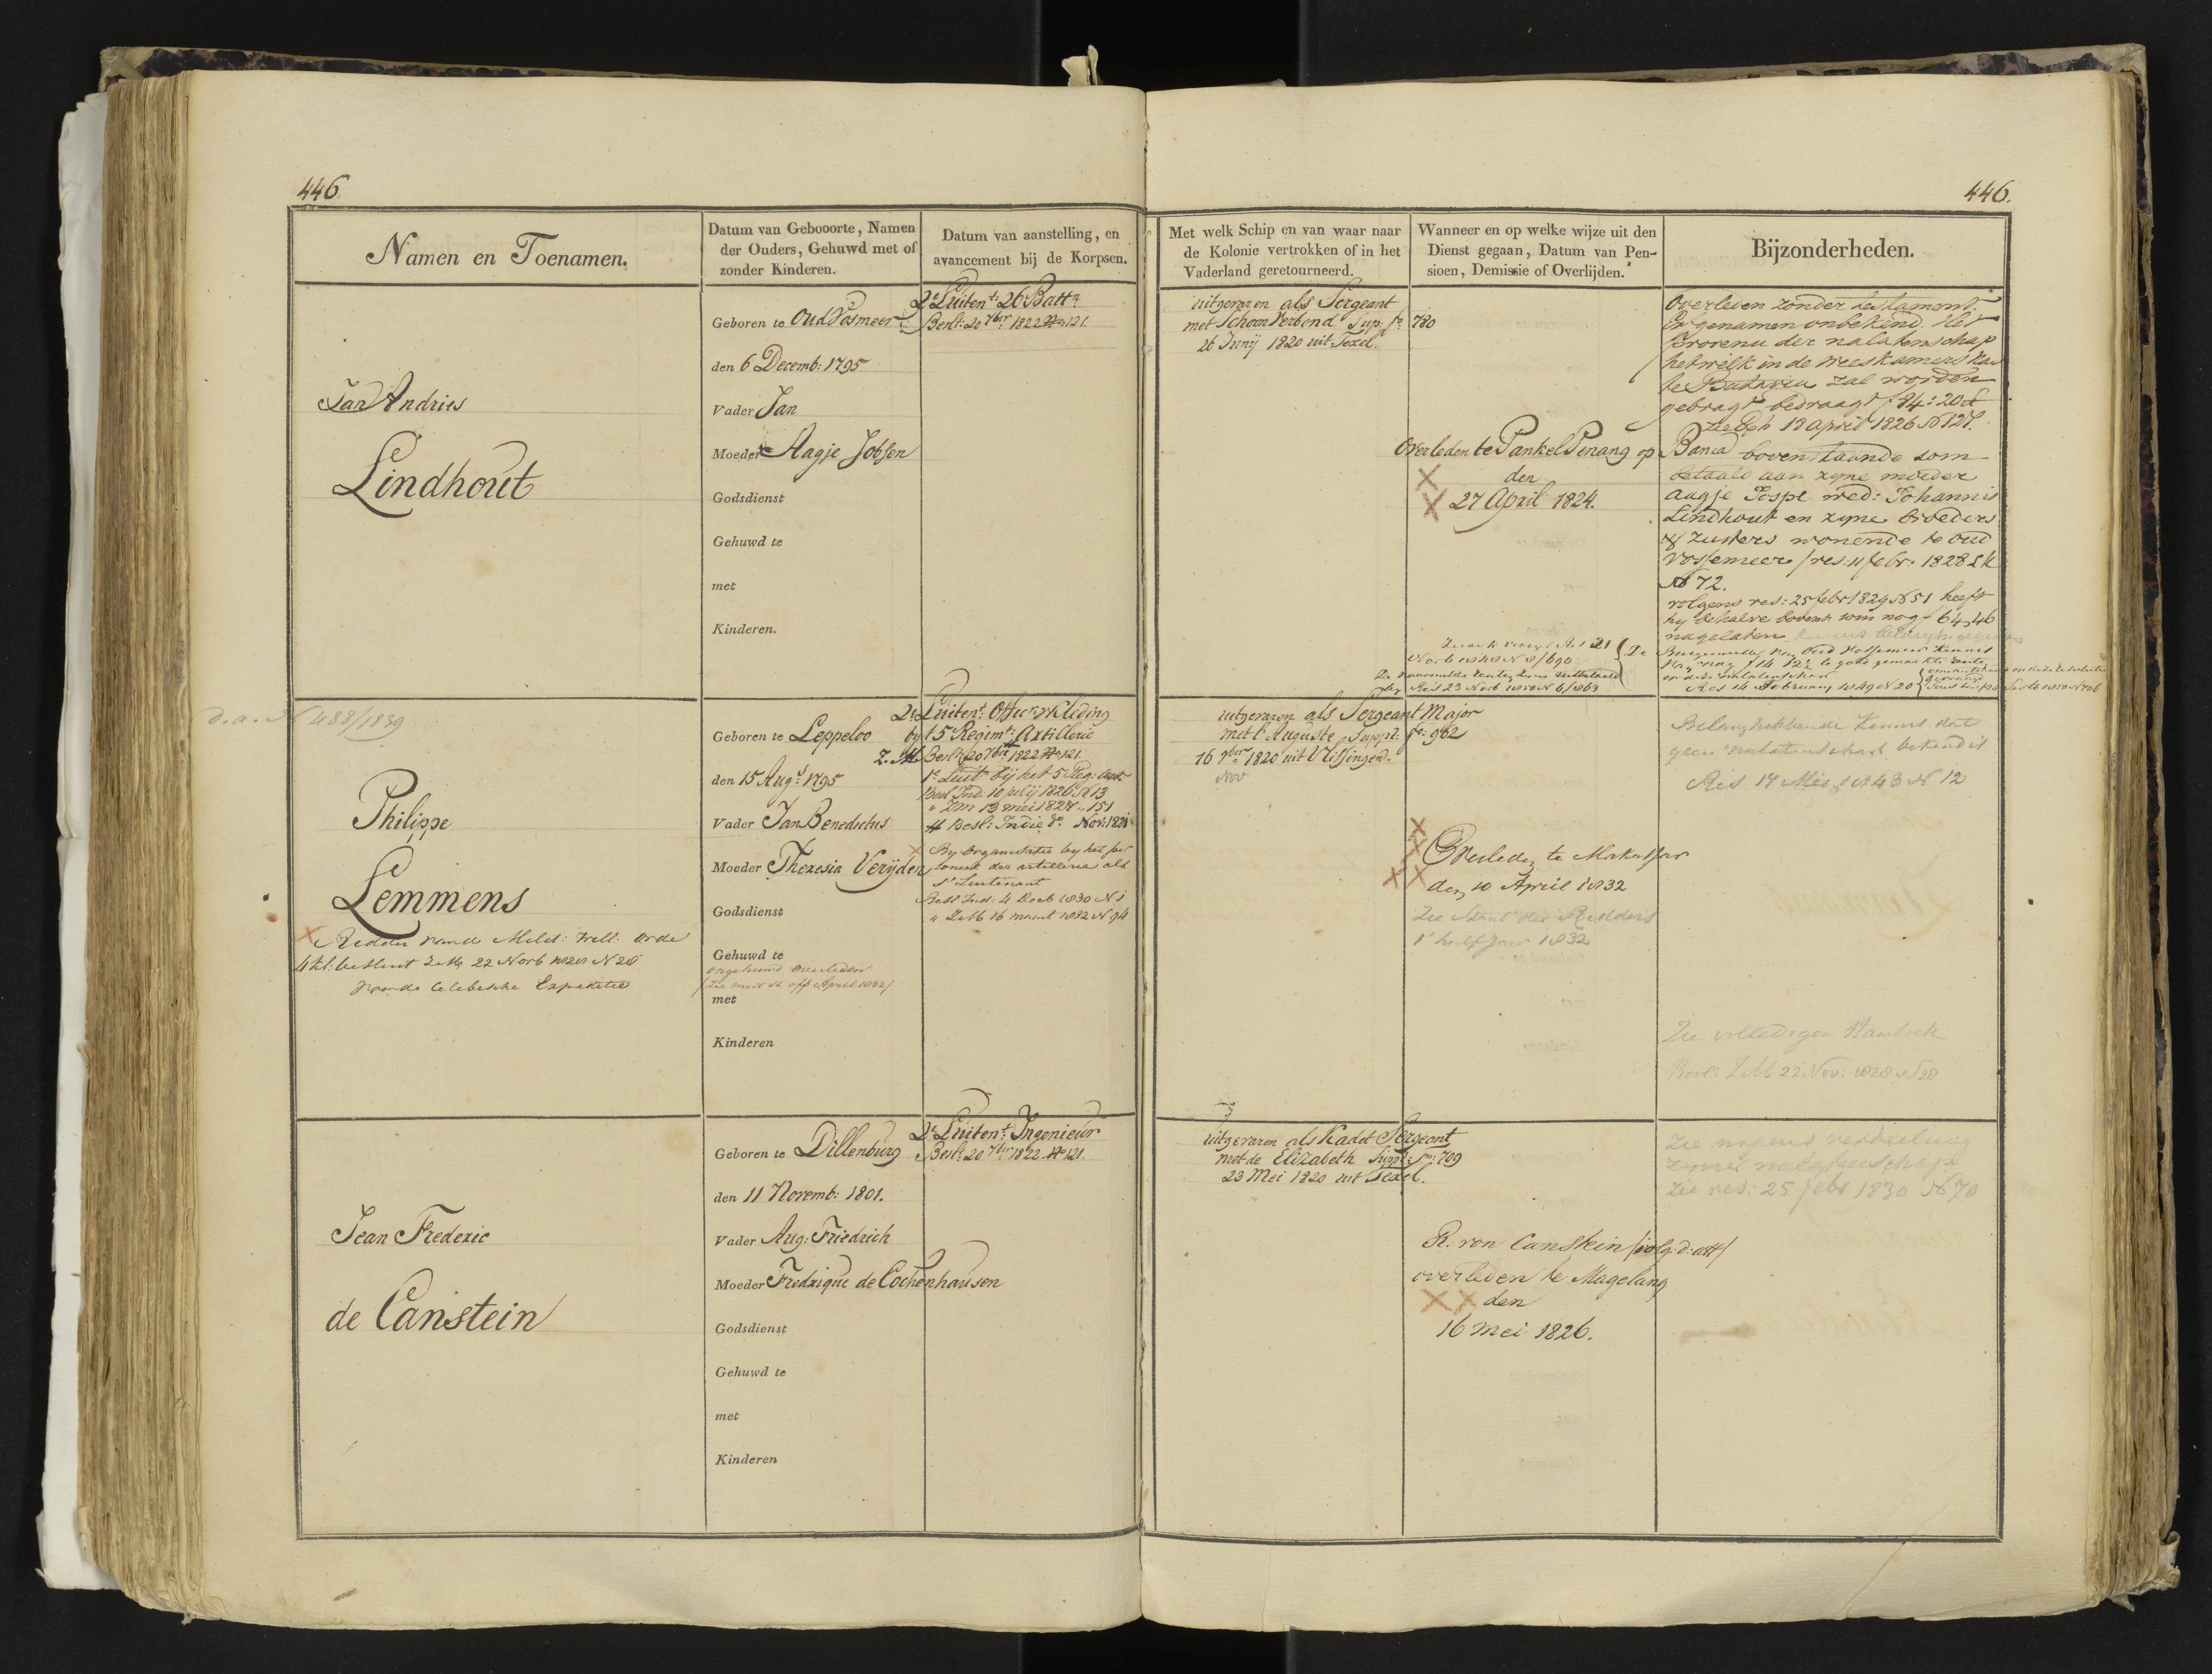 446.
446.
Namen en Toenamen.
Datum van Gebooorte, Namen
der Ouders, Gehuwd met of
zonder Kinderen.
Datum van aanstelling, en
avancement bij de Korpsen.
Met welk Schip en van waar naar
de Kolonie vertrokken of in het
Vaderland geretourneerd.
Wanneer en op welke wijze uit den
Dienst gegaan, Datum van Pen-
sioen, Demissie of Overlijden.
Bijzonderheden.
Jan Andries
Lindhout
Geboren te Oud Vosmeer
den 6 Decemb: 1795
Vader Jan
Moeder Aagje Jobsen
Godsdienst
Gehuwd te
met
Kinderen.
2e Luitent: 26 Battn
Besl: 20 7ber 1822 No 121.
uitgevaren als Sergeant
met Schoon Verbond Sup: fo: 780
26 Junij 1820 uit Texel.
Overleden te Pankel Pinang op Banca
den
27 April 1824.
Overleden zonder testament
Erfgenamen onbekend. Het
Provenu der nalatenschap
hetwelk in de Weeskamers kas
te Batavia zal worden
gebragt bedraagt f 84:20
zie 18 april 1826 N 127.
bovenstaande som
betaald aan zyne moeder
Aagje Jospe wed: Johannis
Lindhout en zyne broeders
& zusters wonende te Oud
Vossemeer / res: 11 febr: 1828 LK
No 72.
volgens res: 25 febr 1829 N 51 heeft
hy behalve bovenst som nog f 64,46
nagelaten
Res 14 February 1849 N 20
Res 23 Novb 1850 N 6/1863
d.a. N 488/1839
Philippe
Lemmens
Ridder van de Milit: Will: Orde
4 kl: besluit ZM 22 Novb 1828 N 28
voor de Celebesche Expeditie
Geboren te Leppeloo
den 15 Augs 1795
Vader Jan Benedictus
Moeder Theresia Verijden
Godsdienst
Gehuwd te
ongehuwd overleden
met
Kinderen
2e Luitent: Offic: v Kleding
by t 5 Regimt: Artillerie
Z. M Besl: 20 7ber 1822 No 121.
1e Luit bij het 5 Reg: Artt
Besl Ind: 10 julij 1826 N 13
" ZM 13 mei 1827 " 151
Besl: Indie do Nov: 1831
By organisatie by het per
soneel der artillerie als
1e Luitenant
Besl Ind: 4 Decb 1830 N 1
" ZM 16 maart 1832 N 94
uitgevaren als Sergeant Major
met l'Auguste Suppt: fo: 962
16 9ber 1820 uit Vlissingen.
Nov
Overleden te Makassar
den 10 April 1832
Zie Staat der Ridders
1e half Jaar 1832
Belanghebbende Kennis dat
geen nalatenschap bekend is
Res 17 Mei 1843 N 12
Zie volledigen Stamboek
Besl: ZM 22 Nov: 1828 N 28
Jean Frederic
de Canstein
Geboren te Dillenburg
den 11 Novemb: 1801.
Vader Aug: Friedrich
Moeder Fredrique de Cochenhausen
Godsdienst
Gehuwd te
met
Kinderen
2e Luitent: Ingenieur
Besl: 20 7ber 1822. No 121.
uitgevaren als Kadet Sergeant
met de Elizabeth Suppl: fo: 709
23 Mei 1820 uit Texel.
R. von Canstein /volg: d: att/
overleden te Magelang
den
16 Mei 1826.
Zie wegens verdeeling
zyner nalatenschap
zie res: 25 febr 1830 No 70